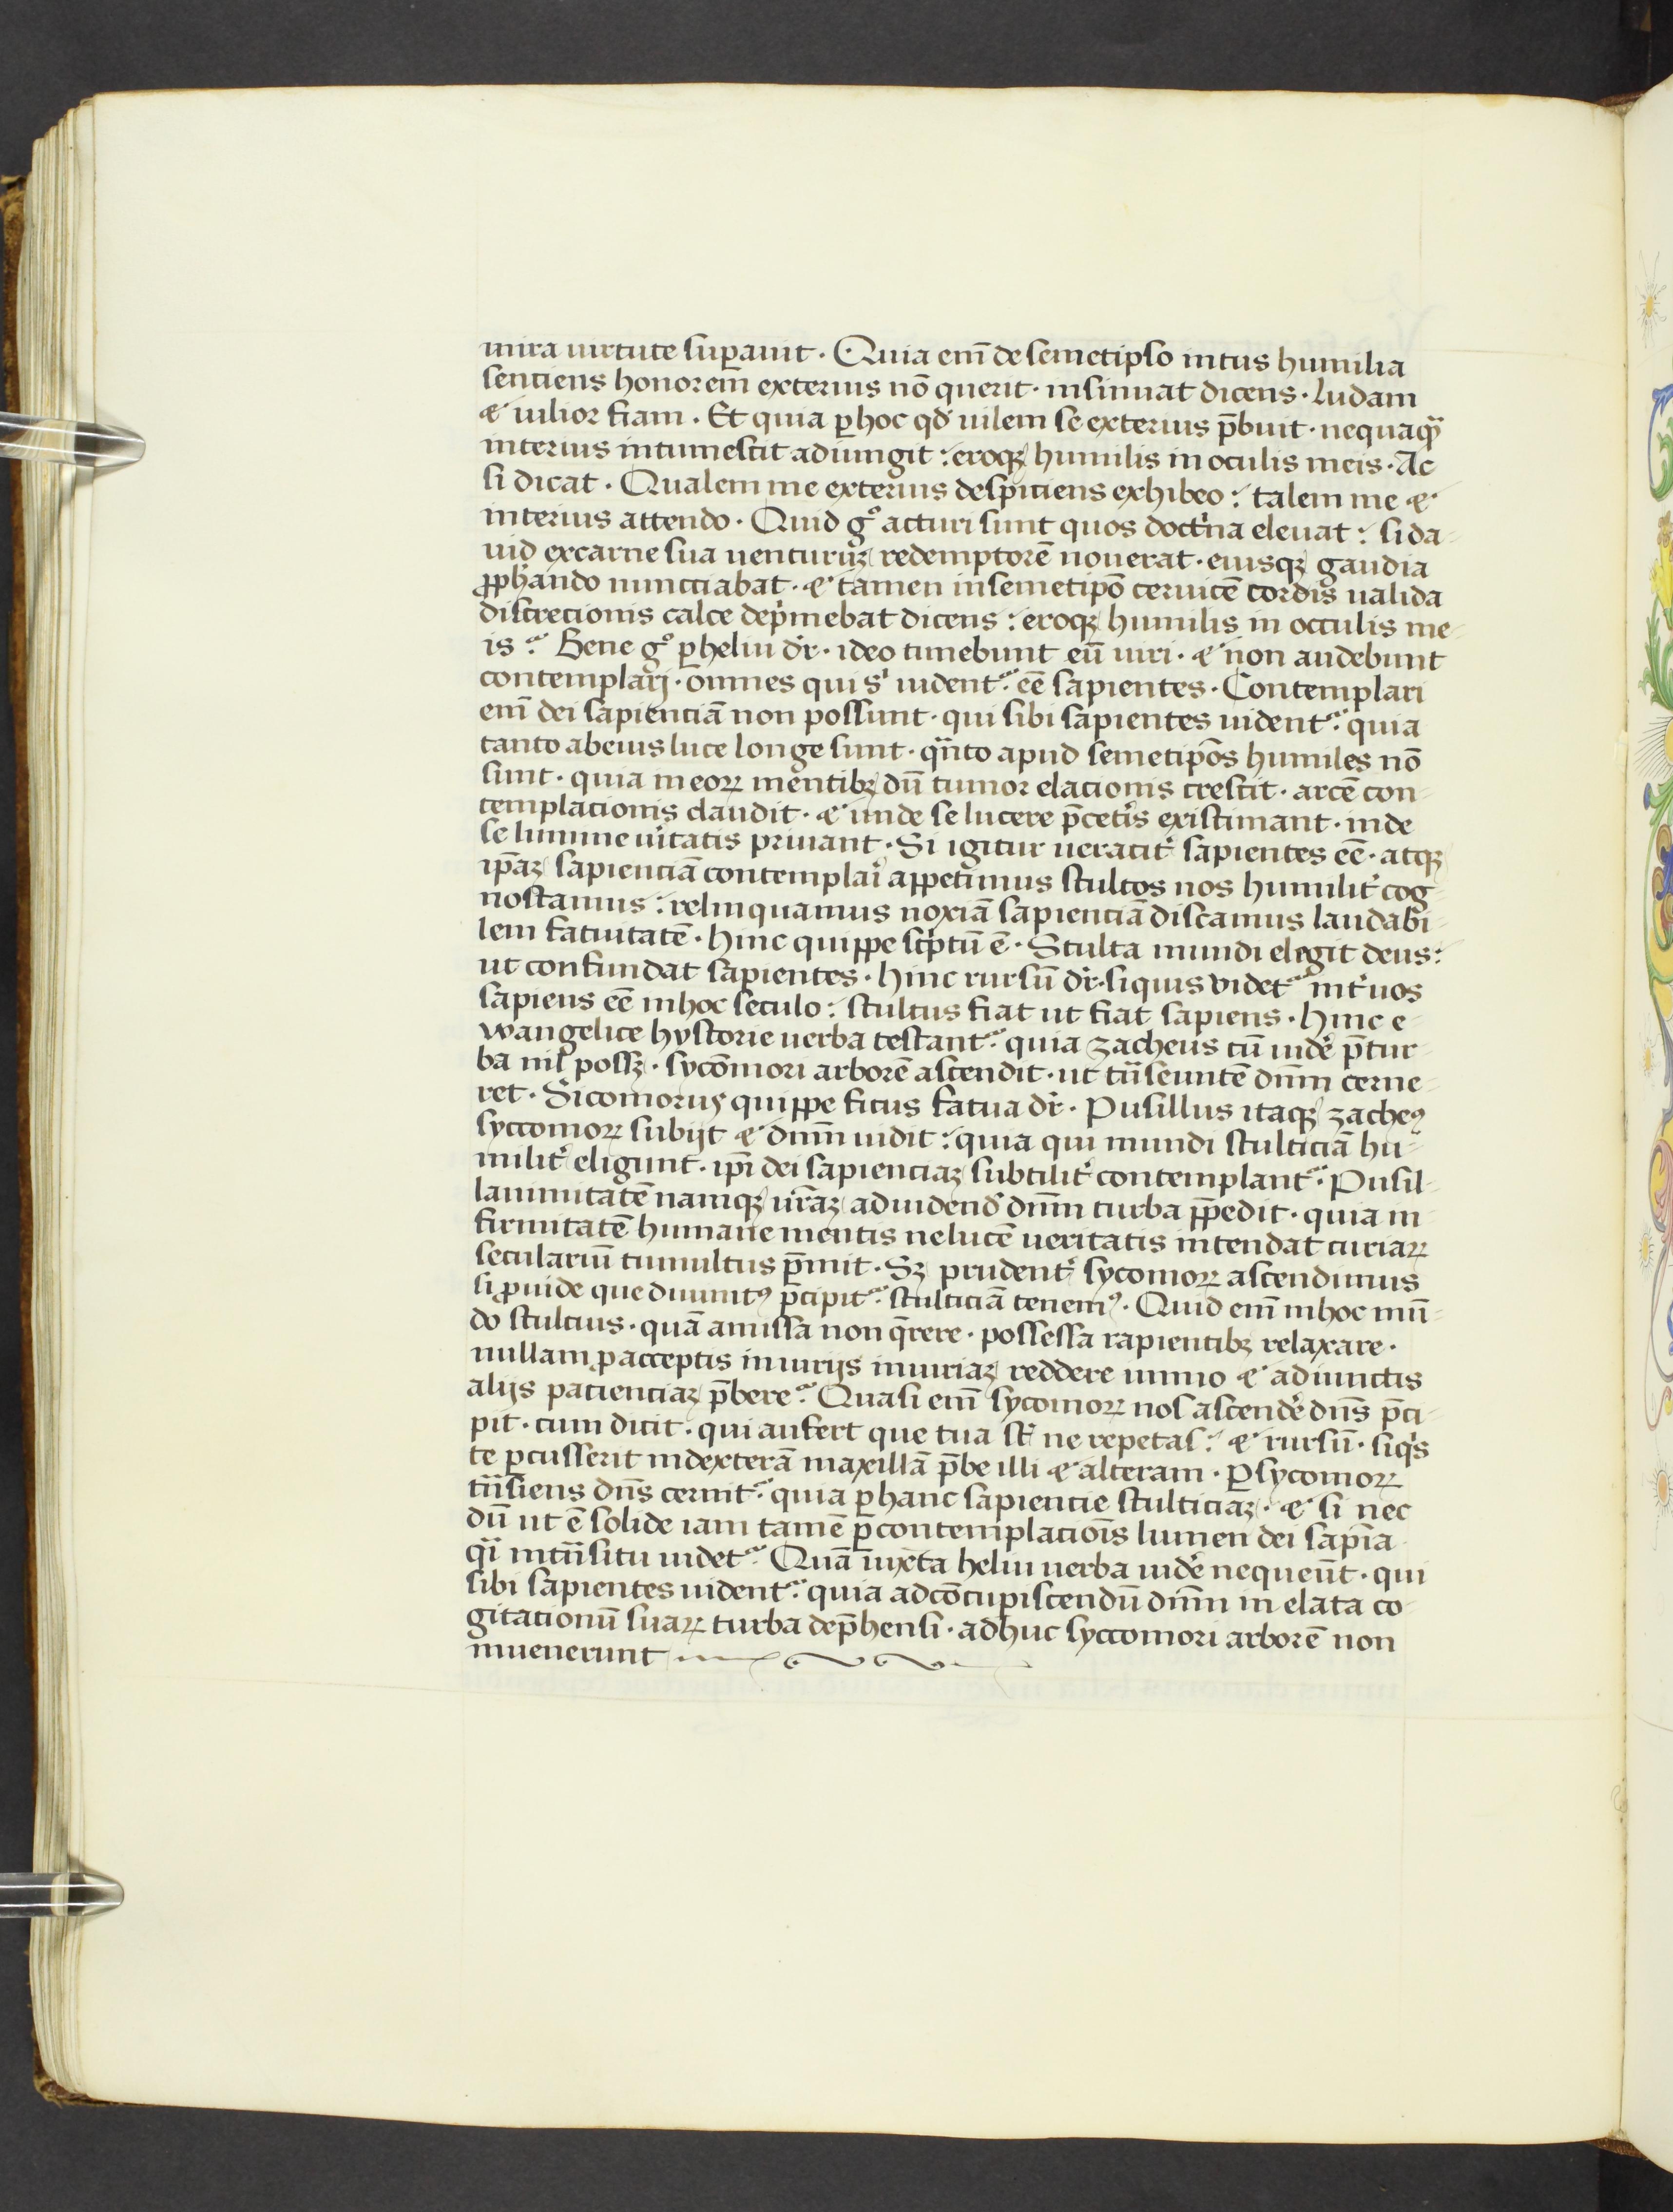 mira uirtute suꝑauit · Quia em̄ de semetipso intus humilia
senciens honorem exterius nō querit · insinuat dicens · ludam
& uilior fiam · Et quia ꝑ hoc qd̛ uilem se exterius p̄buit · nequaqᷓ
interius intumescit adiungit : eroqꝫ humilis in oculis meis · Ac
si dicat · Qualem me exterius despiciens exhibeo : talem me &
interius attendo · Quid gͦ acturi sunt quos doctͥna eleuat : si da-
uid ex carne sua uenturūꝫ redemptorē nouerat · eiusqꝫ gaudia
ꝓph̄ando nunctiabat · & tamen in semetip̄o ceruicē cordis ualida
discrecionis calce depͥmebat dicens : eroqꝫ humilis in occulis me-
is : Bene gͦ ꝑ heliu dr̄ · ideo timebunt eū uiri · & non audebunt
contemplarj · omnes qui sͥ uidentᷣ : eē sapientes · Contemplari
em̄ dei sapienciā non possunt · qui sibi sapientes uidentᷣ : quia
tanto ab eius luce longe sunt · qᷓnto apud semetip̄os humiles nō
sunt · quia in eoꝝ mentibꝫ dū tumor elacionis crescit · arcē con-
templacionis claudit · & unde se lucere p̄cetis̛ existimant · inde
se lumine uit̛atis priuant · Si igitur ueracit̛ sapientes eē · atqꝫ
ip̄aꝫ sapienciā contemplai̛ appetimus stultos nos humilit̛ cog-
noscamus : relinquamus noxiā sapienciā discamus laudabi-
lem fatuitatē · hinc quippe scͥptū ē · Stulta mundi elegit deus :
ut confundat sapientes · hinc rursū dr̄ · si quis videtᷣ int̛ uos
sapiens eē in hoc seculo : stultus fiat ut fiat sapiens · hinc e-
wangelice hystorie uerba testantᷣ : quia zacheus cū uide̛ p̄ tur-
ba nil possꝫ · sycōmori arborē ascendit · ut tᷓnseuntē dn̄m cerne-
ret · Sicomorus quippe ficus fatua dr̄ · Pusillus itaqꝫ zacheꝰ
syccomoꝝ subijt & dn̄m uidit : quia qui mundi stulticiā hu-
milit̛ eligunt · ip̄i dei sapienciaꝫ subtilit̛ contemplantᷣ : Pusil-
lanimitatē namqꝫ nr̄aꝫ ad uidend̛ dn̄m turba p̄pedit · quia in-
firmitatē humane mentis ne lucē ueritatis intendat curiaꝝ
secularium tumultus p̄mit · Sꝫ prudent̛ sycomoꝝ ascendimus
si ꝓuide que diuinitꝰ p̄cipitᷣ : stulticiā tenemꝰ · Quid em̄ in hoc mū-
do stultius · quā amissa non q̄rere · possessa rapientibꝫ relaxare ·
nullam ꝓ acceptis iniurijs iniuriaꝫ reddere immo & adiunctis
alijs pacienciaꝫ p̄bere : Quasi em̄ sycomoꝝ nos ascende̛ dn̄s p̄ci-
pit · cum dicit · qui aufert que tua st̄ ne repetas : & rursū · si qͥs
te ꝑcusserit in dexterā maxillā p̄be illi & alteram · ꝑ sycomoꝝ
tᷓnsiens dn̄s cernitᷣ : quia ꝑ hanc sapiencie stulticiaꝫ · & si nec-
dū ut ē solide iam tamē ꝑ contemplacioīs lumen dei sapīa
qͣi in tᷓnsitu uidetᷣ : Quā iuxta heliu uerba uide̛ nequeūt · qui
sibi sapientes uidentᷣ : quia ad cōcupiscendū dn̄m in elata co-
gitacionū suaꝝ turba dep̄hensi · adhuc syccomori arborē non
inuenerunt